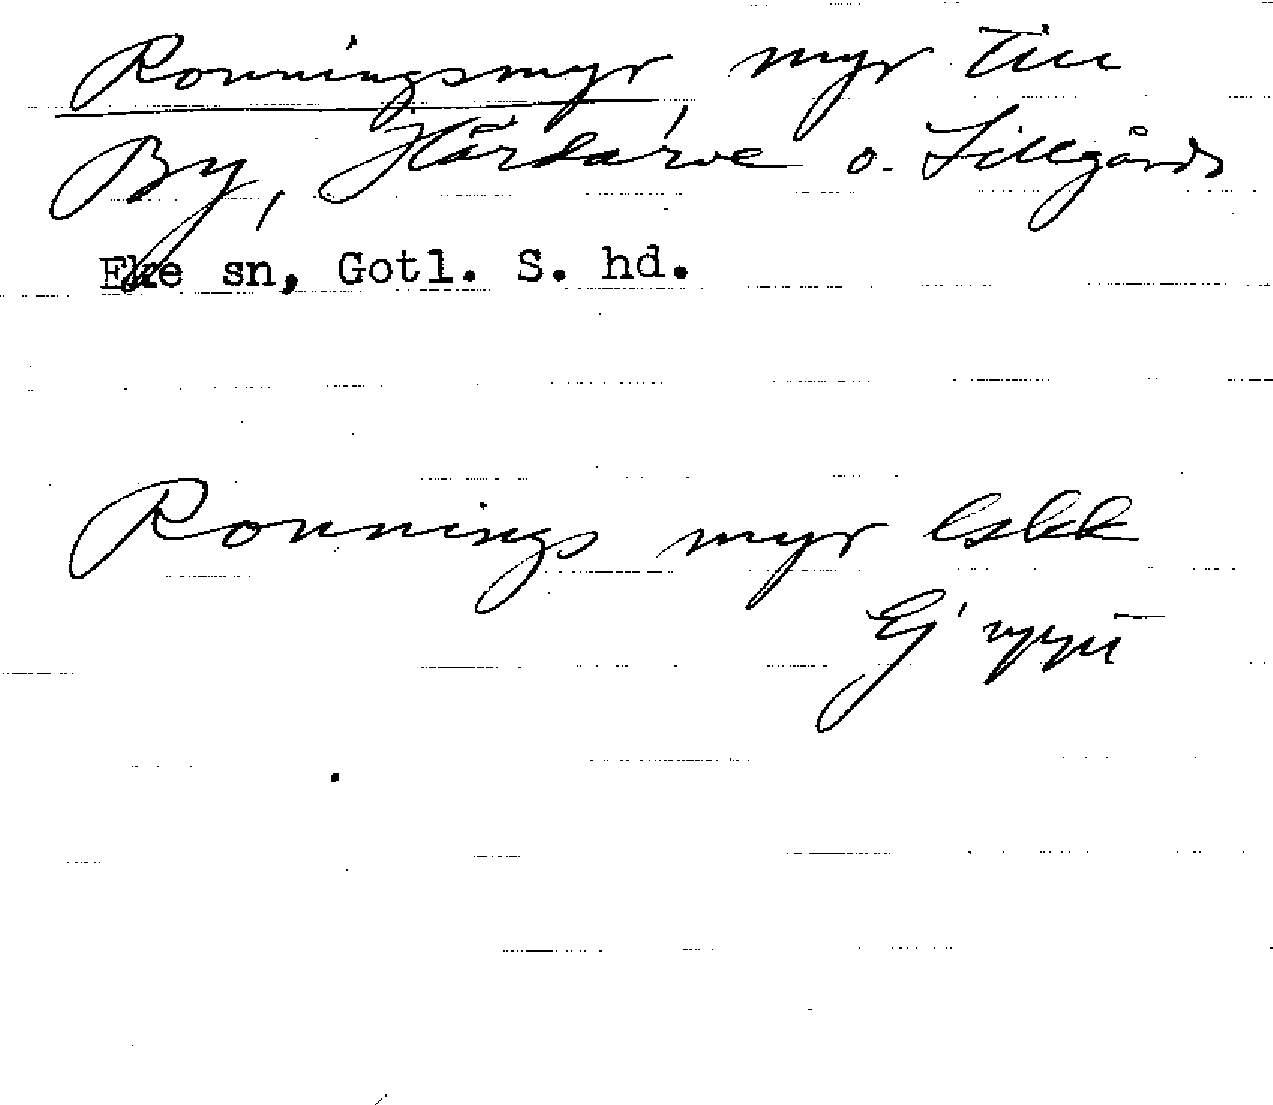 Ronningsmyr myr till
By, Hårdarve o. Lillgårds
Eke sn, Gotl. S. hd.
Ronnings myr Eskk
Ej uppt